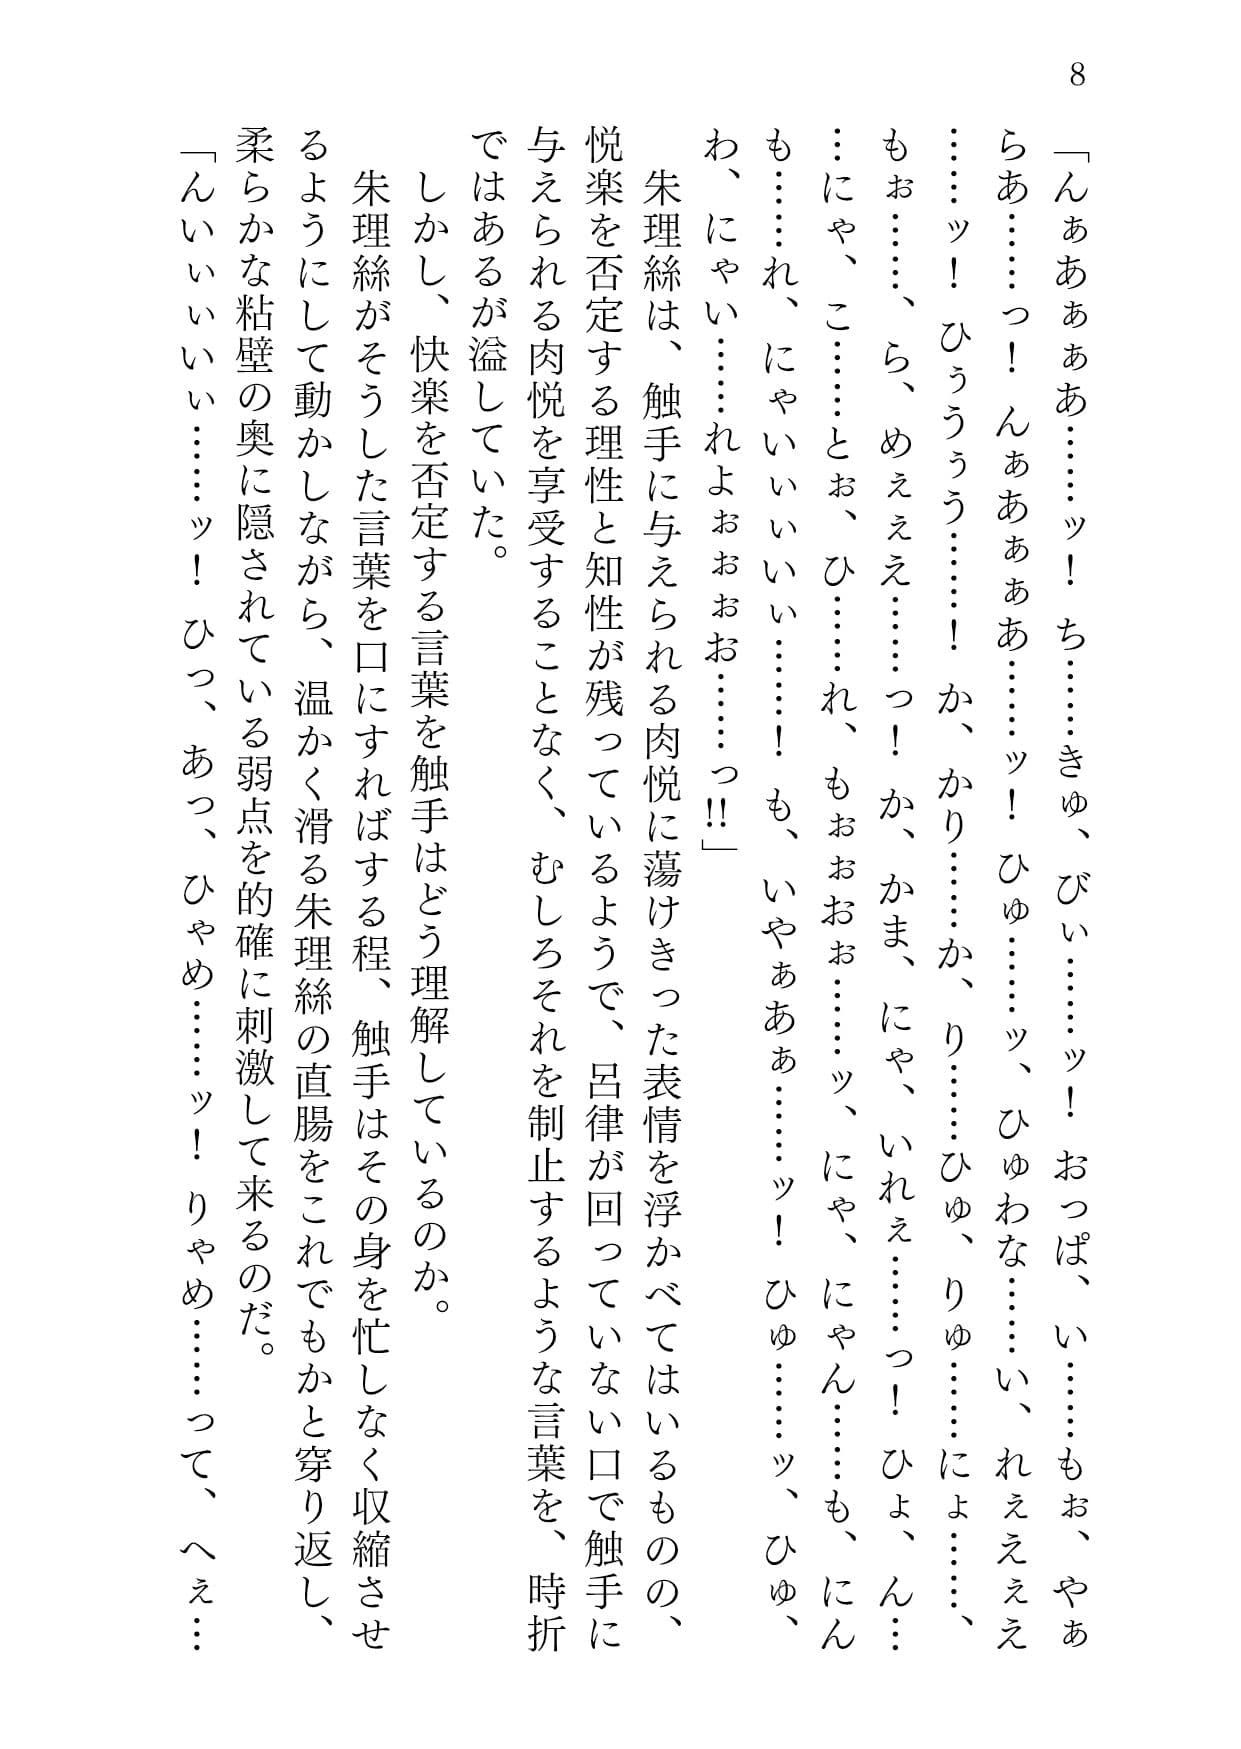 8
「んぁあぁぁあ……ッ！　ち……きゅ、びぃ……ッ！　おっぱ、い……もぉ、やぁ
らあ……っ！　んぁあぁぁあ……ッ！　ひゅ……ッ、ひゅわな……い、れぇえぇえ
……ッ！　ひぅうぅう……！　か、かり……か、り……ひゅ、りゅ……にょ……、
もぉ……、ら、めぇぇえ……っ！　か、かま、にゃ、いれぇ……っ！　ひょ、ん…
…にゃ、こ……とぉ、ひ……れ、もぉぉおぉ……ッ、にゃ、にゃん……も、にん
も……れ、にゃいぃぃいぃ……！　も、いやぁあぁ……ッ！　ひゅ……ッ、ひゅ、
わ、にゃい……れよぉぉぉお……っ!!」
　朱理絲は、触手に与えられる肉悦に蕩けきった表情を浮かべてはいるものの、
悦楽を否定する理性と知性が残っているようで、呂律が回っていない口で触手に
与えられる肉悦を享受することなく、むしろそれを制止するような言葉を、時折
ではあるが溢していた。
　しかし、快楽を否定する言葉を触手はどう理解しているのか。
　朱理絲がそうした言葉を口にすればする程、触手はその身を忙しなく収縮させ
るようにして動かしながら、温かく滑る朱理絲の直腸をこれでもかと穿り返し、
柔らかな粘壁の奥に隠されている弱点を的確に刺激して来るのだ。
「んいぃぃいぃ……ッ！　ひっ、あっ、ひゃめ……ッ！　りゃめ……って、へぇ…